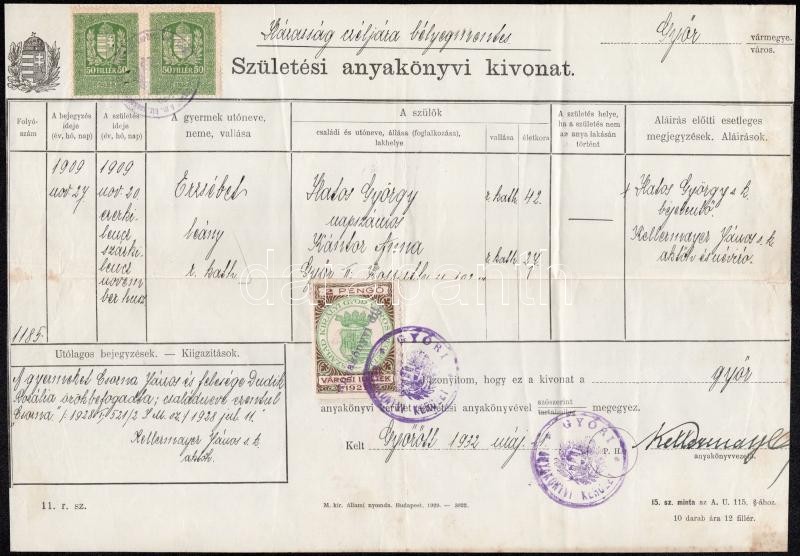 Házasság czéljára bélyegmentes
Győr vármegye.
város.
50 FILLÉR 50
50 FILLÉR 50
Születési anyakönyvi kivonat.
Folyó-
szám
A bejegyzés
ideje
(év, hó, nap)
A születés
ideje
(év, hó, nap)
A gyermek utóneve,
neme, vallása
A szülők
családi és utóneve, állása (foglalkozása),
lakhelye
vallása
életkora
A születés helye,
ha a születés nem
az anya lakásán
történt
Aláírás előtti esetleges
megjegyzések. Aláírások.
1185.
1909
nov. 27
1909
nov. 20
ezerki-
lencz
lencz
novem
ber husz
Erzsébet
leány
r. kath.
Katos György
napszámos
Kántor Anna
Győr
r. kath. 42.
r. kath. 27.
Katos György s. k.
bejelentő.
Kellermayer János s. k.
2 PENGŐ
VÁROSI ILLETÉK
Utólagos bejegyzések. — Kiigazítások.
A gyermeket Csorna János és felesége Dudik
Rozália örökbefogadta; családneve ezentúl
"Csorna"
Kellermayer János s. k.
aktkv.
bizonyítom, hogy ez a kivonat a győri
anyakönyvi kerület születési anyakönyvével szószerint megegyez.
tartalmilag
Kelt Győrött 1932 máj.
P. H.
Kellermayer
anyakönyvvezető.
GYŐRI
ANYAKÖNYVI KERÜLET
GYŐRI
ANYAKÖNYVI KERÜLET
11. r. sz.
M. kir. állami nyomda. Budapest, 1929. — 3822.
15. sz. minta az A. U. 115. §-ához.
10 darab ára 12 fillér.